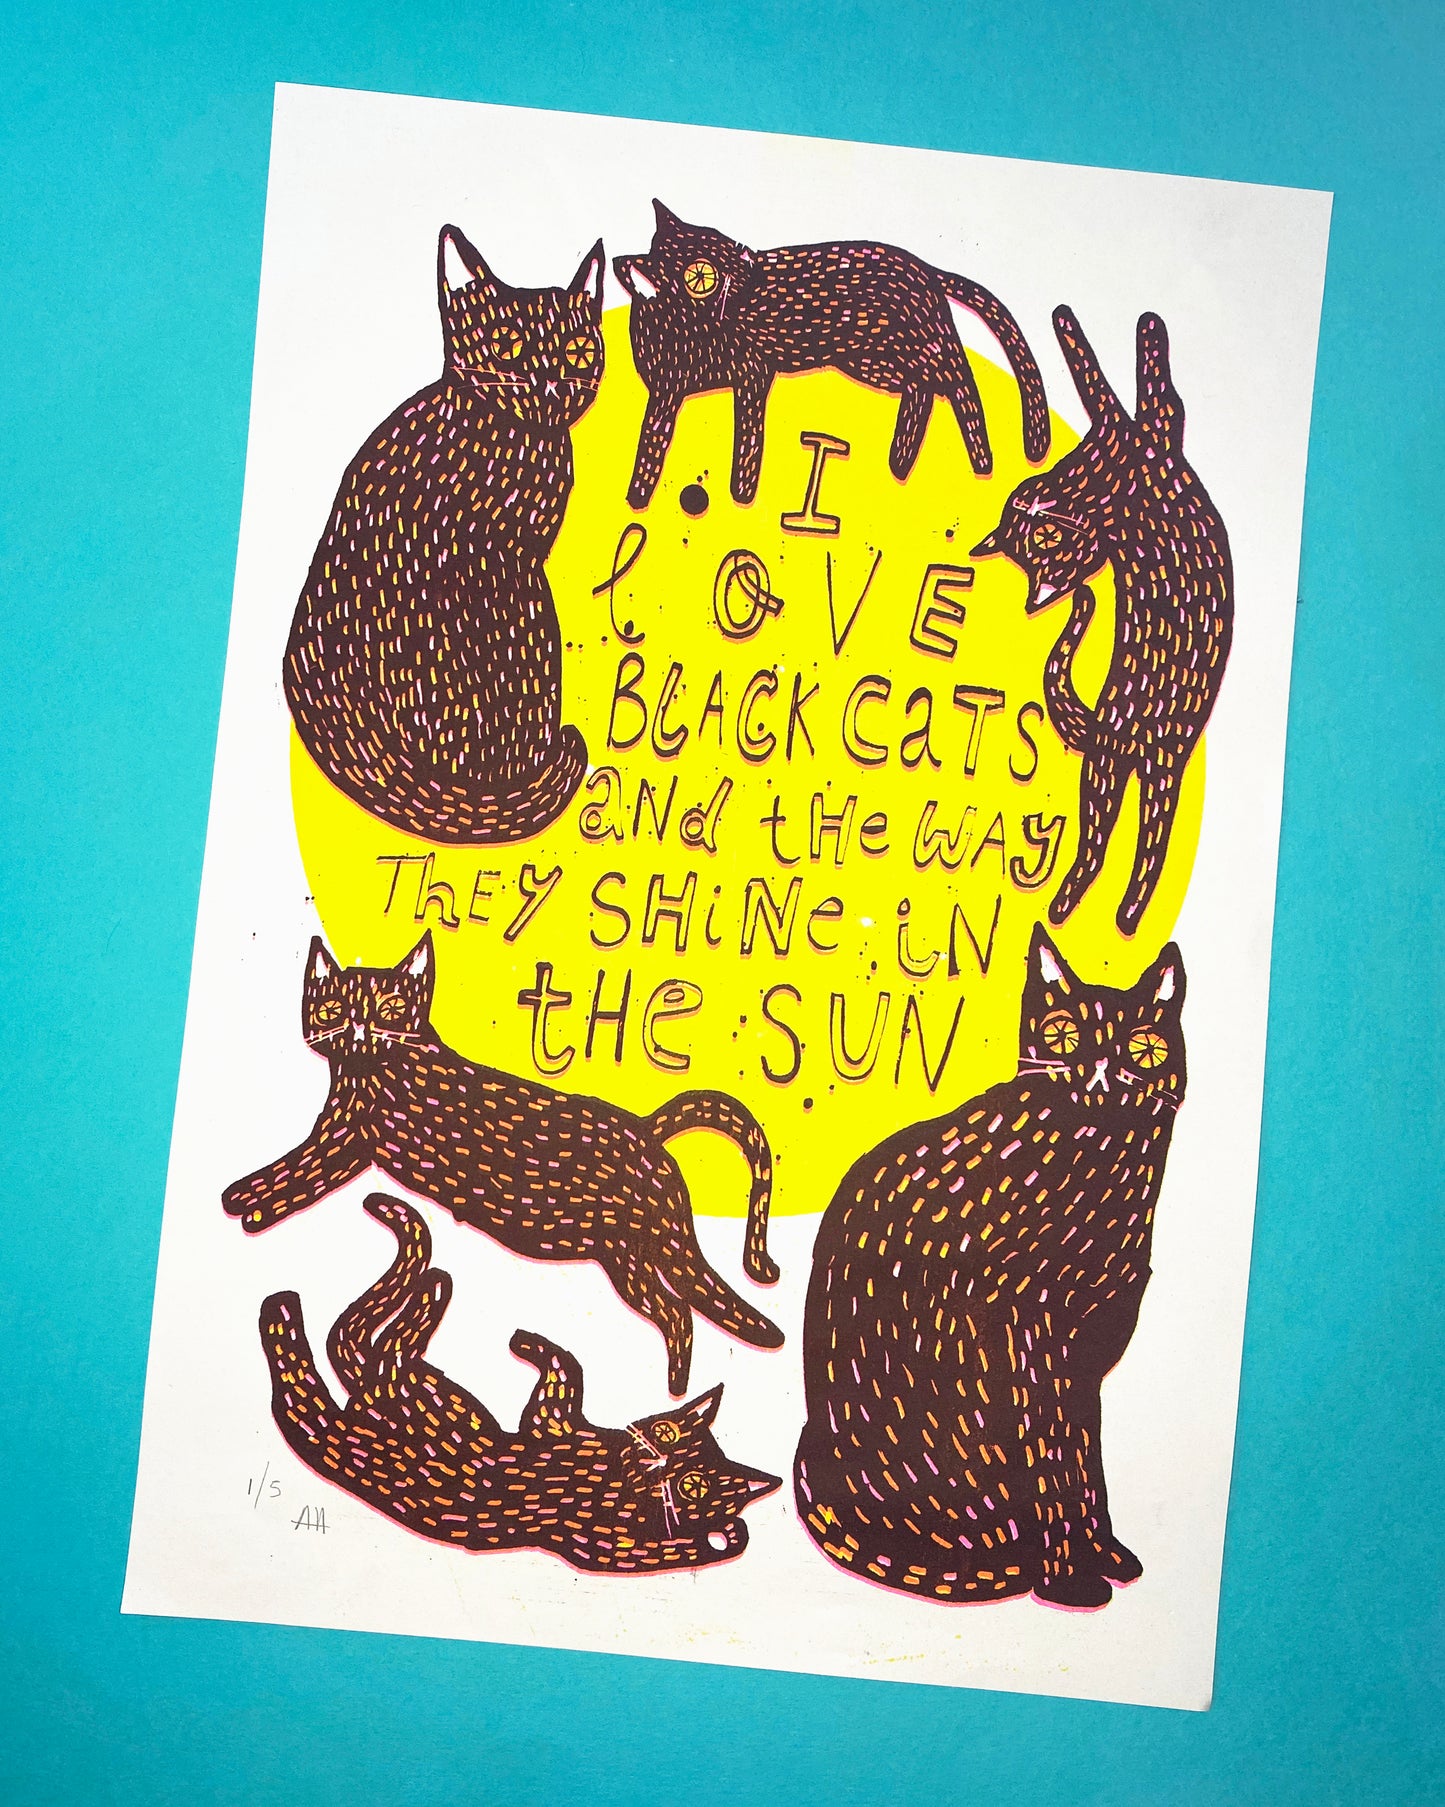 I
lOVE
BLACK CaTS
aNd tHe WAY
ThEY SHiNe iN
tHe SUN
1/5
AA